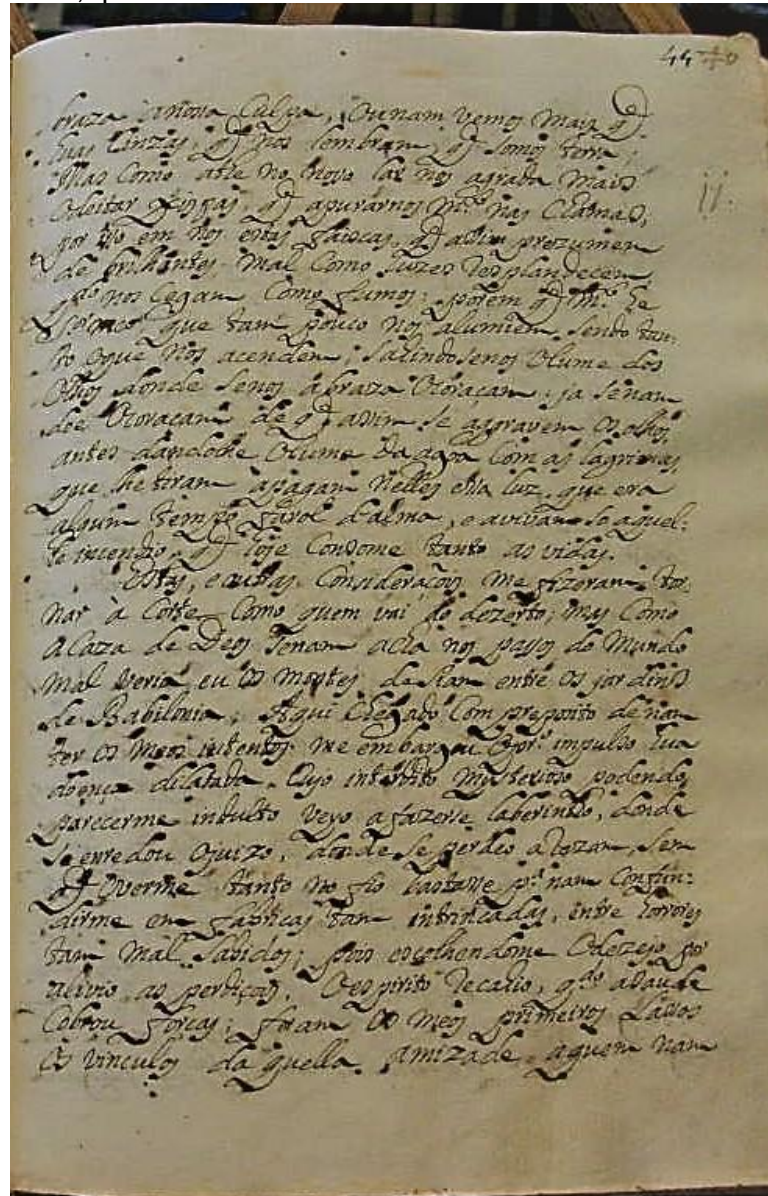 44
braza a nossa Culpa, Ou nam vemos mais q̃
huas Cinzas, q̃ nos lembram, q̃ somos terra;
Mas Como neste no nosso lar nos agrada mais
O deitar q̃ apurarnos m.to nas Chamas,
por isso em nos estas faiscas, q̃ assim prezumem
de brilhantes, mal Como luzes resplandecem,
q.do nos Cegam Como fumos; porem q̃ m.to he
que tam pouco nos alumiem, sendo tan:
to o que nos acendem; sahindosenos O lume dos
Olhos donde senos abraza O Coraçam; ja senam
doe O Coraçam de q̃ assim se aggravem Os olhos,
antes dandolhe O lume da agoa Com as lagrimas,
que lhe tiram apagam nelles essa luz, que era
algum tempo farol d'alma, e avivam se aquel:
le incendio, q̃ hoje Consome tanto as vidas.
Estas, e outras Consideraçois me fizeram tor:
nar à Corte Como quem vai ao dezerto; mas Como
A Caza de Deos senam acha nos passos do Mundo
mal veria eu Os montes de Siam entre Os jardins
de Babilonia; Aqui Chegado Com preposito de nam
ter Os meos intentos me embargou O pr.o impulso hua
doença dilatada. Cujo interdito mysterioso podendo
parecerme indulto veyo a fazerse laberinto, donde
se enredou O juizo, donde se perdeo a rezam, sem
q̃ Overme tanto no fio bastasse p.a nam Confun:
dirme em fabricas tam intrincadas, entre horrores
tam mal sabidos; pois escolhendome O dezejo por
alivio as perdiçois, O espirito recahio, q.do a saude
Cobrou forças; foram Os meos primeiros Lassos
Os vinculos da quella amizade, aquem nam
11.